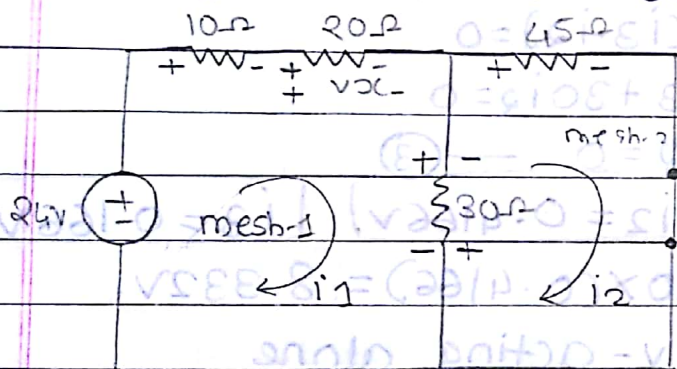 10Ω 20Ω 45Ω
+ - + - + -
+ vx -
mesh-2
+ -
24v + - mesh-1 30Ω
- +
i1 i2